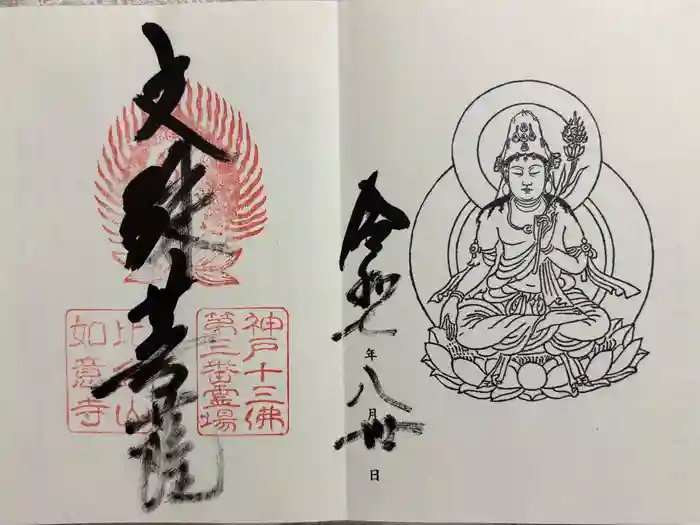 令和七年八月卅日
文殊菩薩
神戸十三佛
第三番霊場
比金山
如意寺